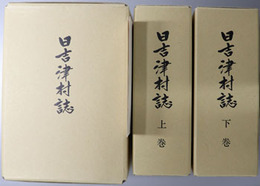 日吉津村誌
日吉津村誌
上巻
日吉津村誌
下巻